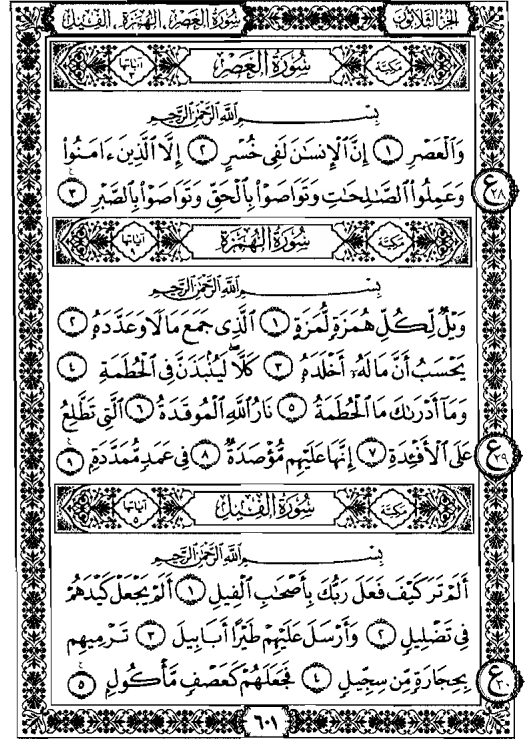 الجزء الثلاثون
سورة العصر ، الهمزة ، الفيل
مكية
سُورَةُ الْعَصْرِ
آياتها ٣
بِسْمِ اللَّهِ الرَّحْمَٰنِ الرَّحِيمِ
وَالْعَصْرِ ١ إِنَّ الْإِنسَانَ لَفِي خُسْرٍ ٢ إِلَّا الَّذِينَ ءَامَنُوا
وَعَمِلُوا الصَّالِحَاتِ وَتَوَاصَوْا بِالْحَقِّ وَتَوَاصَوْا بِالصَّبْرِ ٣
ع ٢٨
مكية
سُورَةُ الْهُمَزَةِ
آياتها ٩
بِسْمِ اللَّهِ الرَّحْمَٰنِ الرَّحِيمِ
وَيْلٌ لِّكُلِّ هُمَزَةٍ لُّمَزَةٍ ١ الَّذِي جَمَعَ مَالًا وَعَدَّدَهُ ٢
يَحْسَبُ أَنَّ مَالَهُ أَخْلَدَهُ ٣ كَلَّا ۖ لَيُنْبَذَنَّ فِي الْحُطَمَةِ ٤
وَمَا أَدْرَاكَ مَا الْحُطَمَةُ ٥ نَارُ اللَّهِ الْمُوقَدَةُ ٦ الَّتِي تَطَّلِعُ
عَلَى الْأَفْئِدَةِ ٧ إِنَّهَا عَلَيْهِم مُّؤْصَدَةٌ ٨ فِي عَمَدٍ مُّمَدَّدَةٍ ٩
ع ٢٩
مكية
سُورَةُ الْفِيلِ
آياتها ٥
بِسْمِ اللَّهِ الرَّحْمَٰنِ الرَّحِيمِ
أَلَمْ تَرَ كَيْفَ فَعَلَ رَبُّكَ بِأَصْحَابِ الْفِيلِ ١ أَلَمْ يَجْعَلْ كَيْدَهُمْ
فِي تَضْلِيلٍ ٢ وَأَرْسَلَ عَلَيْهِمْ طَيْرًا أَبَابِيلَ ٣ تَرْمِيهِم
بِحِجَارَةٍ مِّن سِجِّيلٍ ٤ فَجَعَلَهُمْ كَعَصْفٍ مَّأْكُولٍ ٥
ع ٣٠
٦٠١